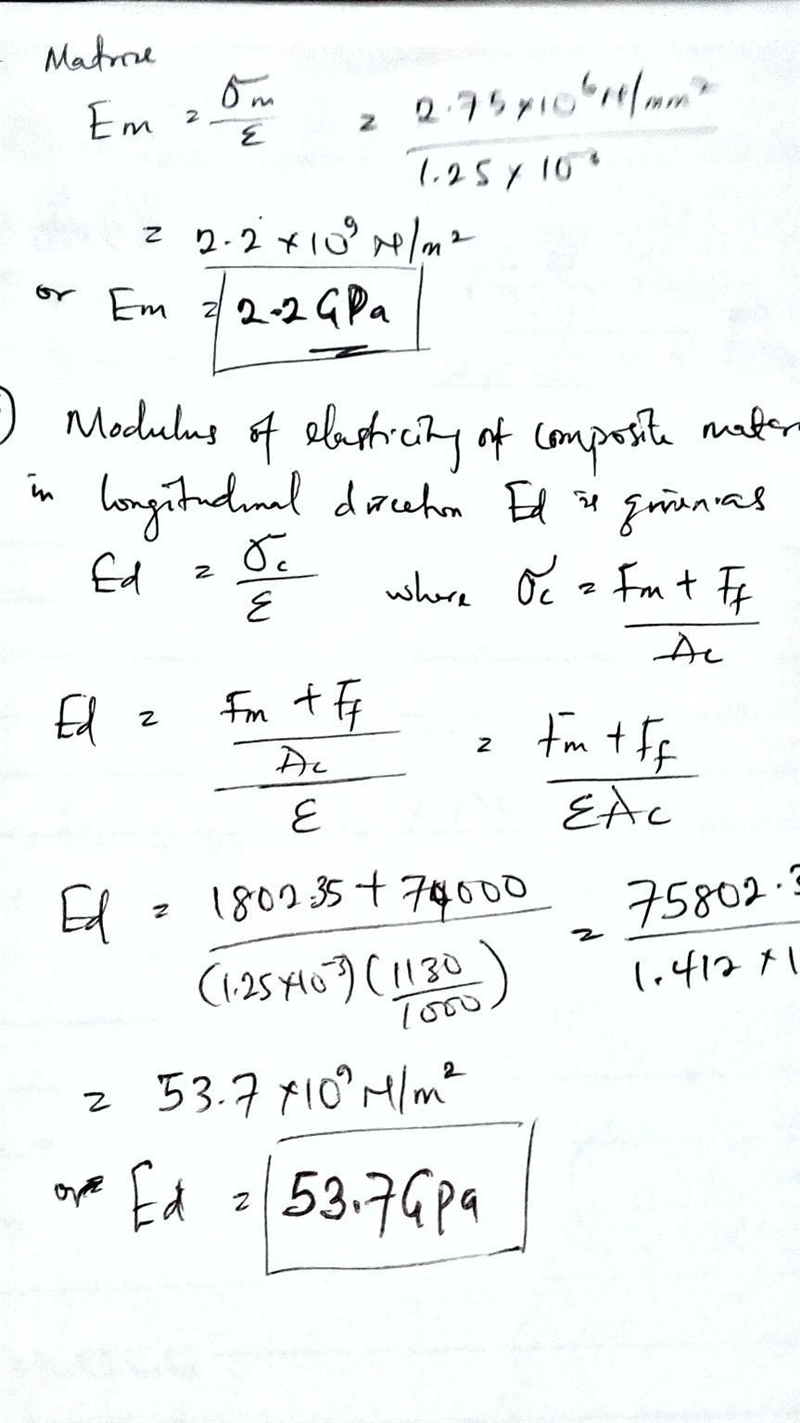 Matrix
Em = σm/ε = 2.75×10⁶ N/mm² / 1.25×10⁻³
= 2.2×10⁹ N/m²
or Em = 2.2 GPa
Modulus of elasticity of composite mater
in longitudinal direction Ed is given as
Ed = σc/ε where σc = Fm + Ff / Ac
Ed = Fm + Ff / Ac / ε = Fm + Ff / εAc
Ed = 1802.35 + 74000 / (1.25×10⁻³)(1130/1000) = 75802.3 / 1.412×1
= 53.7×10⁹ N/m²
or Ed = 53.7GPa